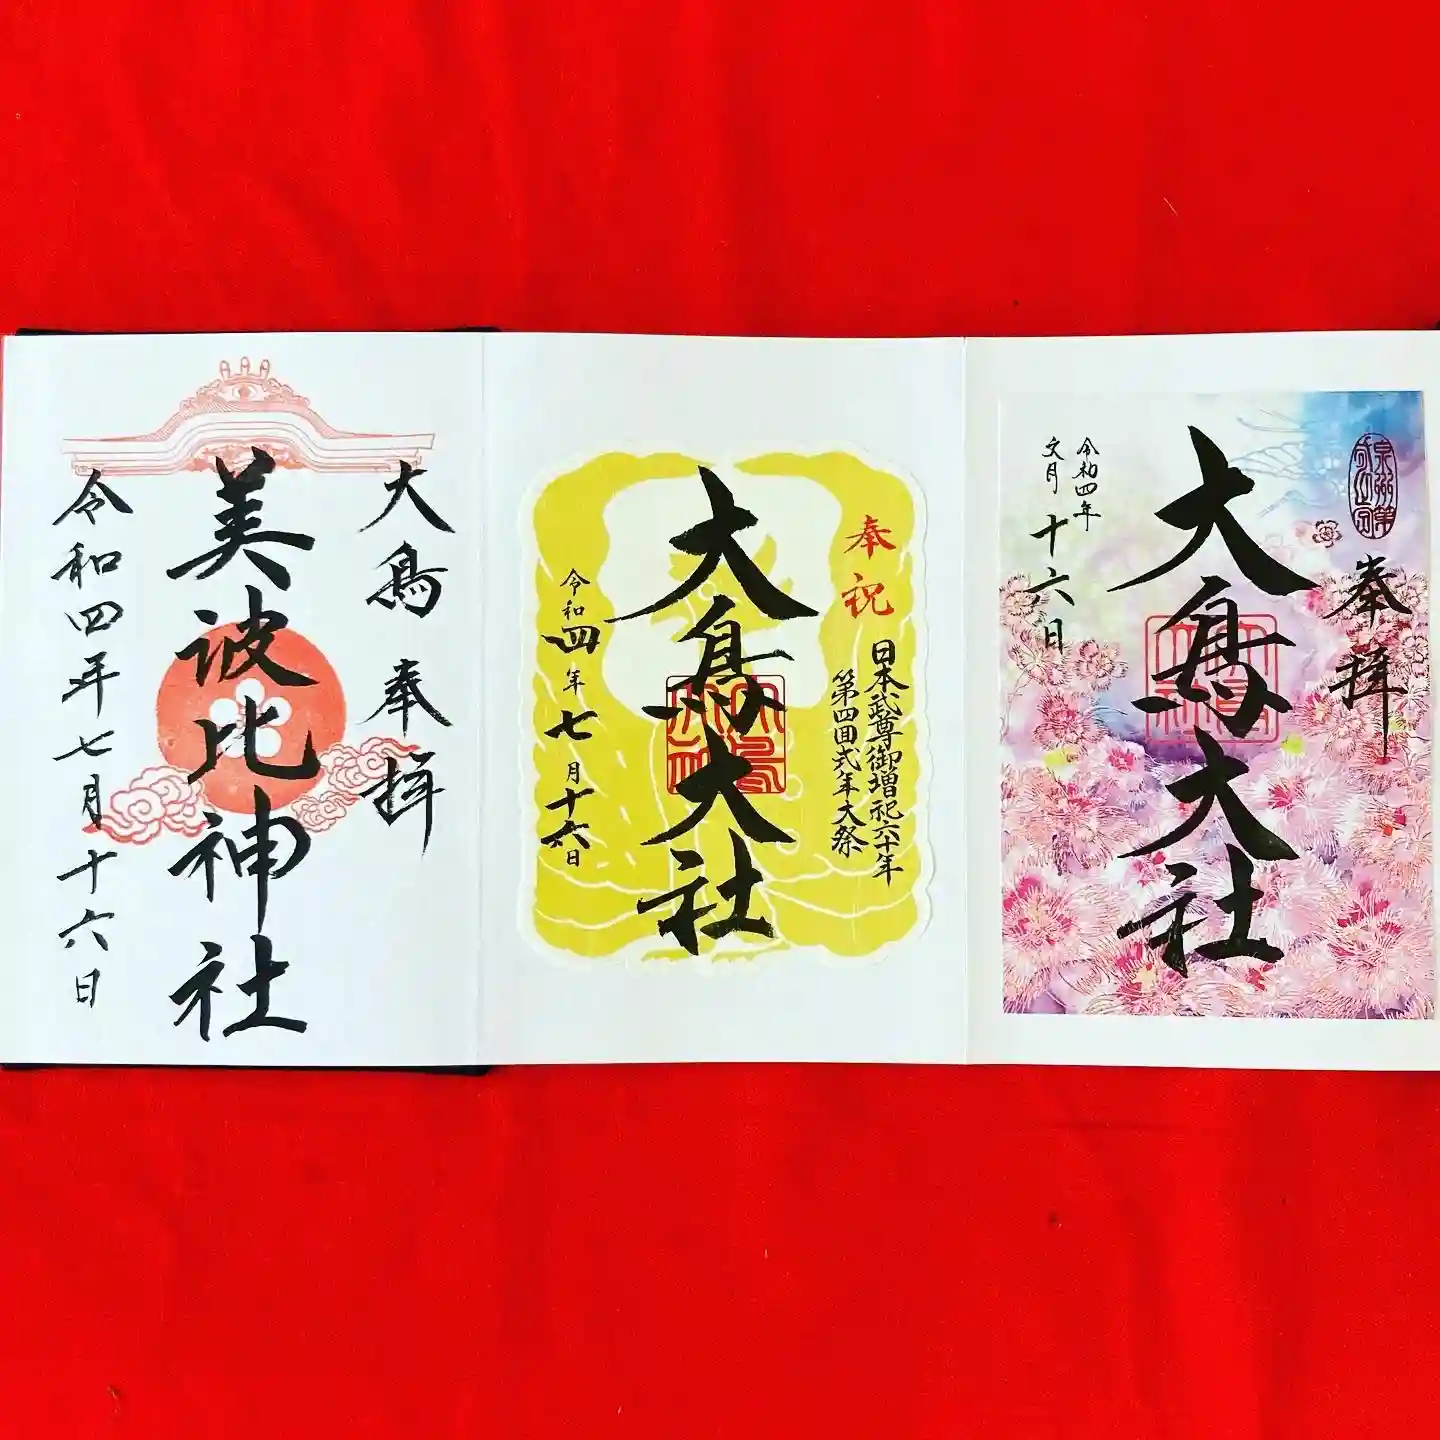 奉拝
大鳥大社
令和四年
文月
十六日
奉祝
日本武尊御増祀六十年
第四回式年大祭
大鳥大社
令和四年七月十六日
大鳥 奉拝
美波比神社
令和四年七月十六日